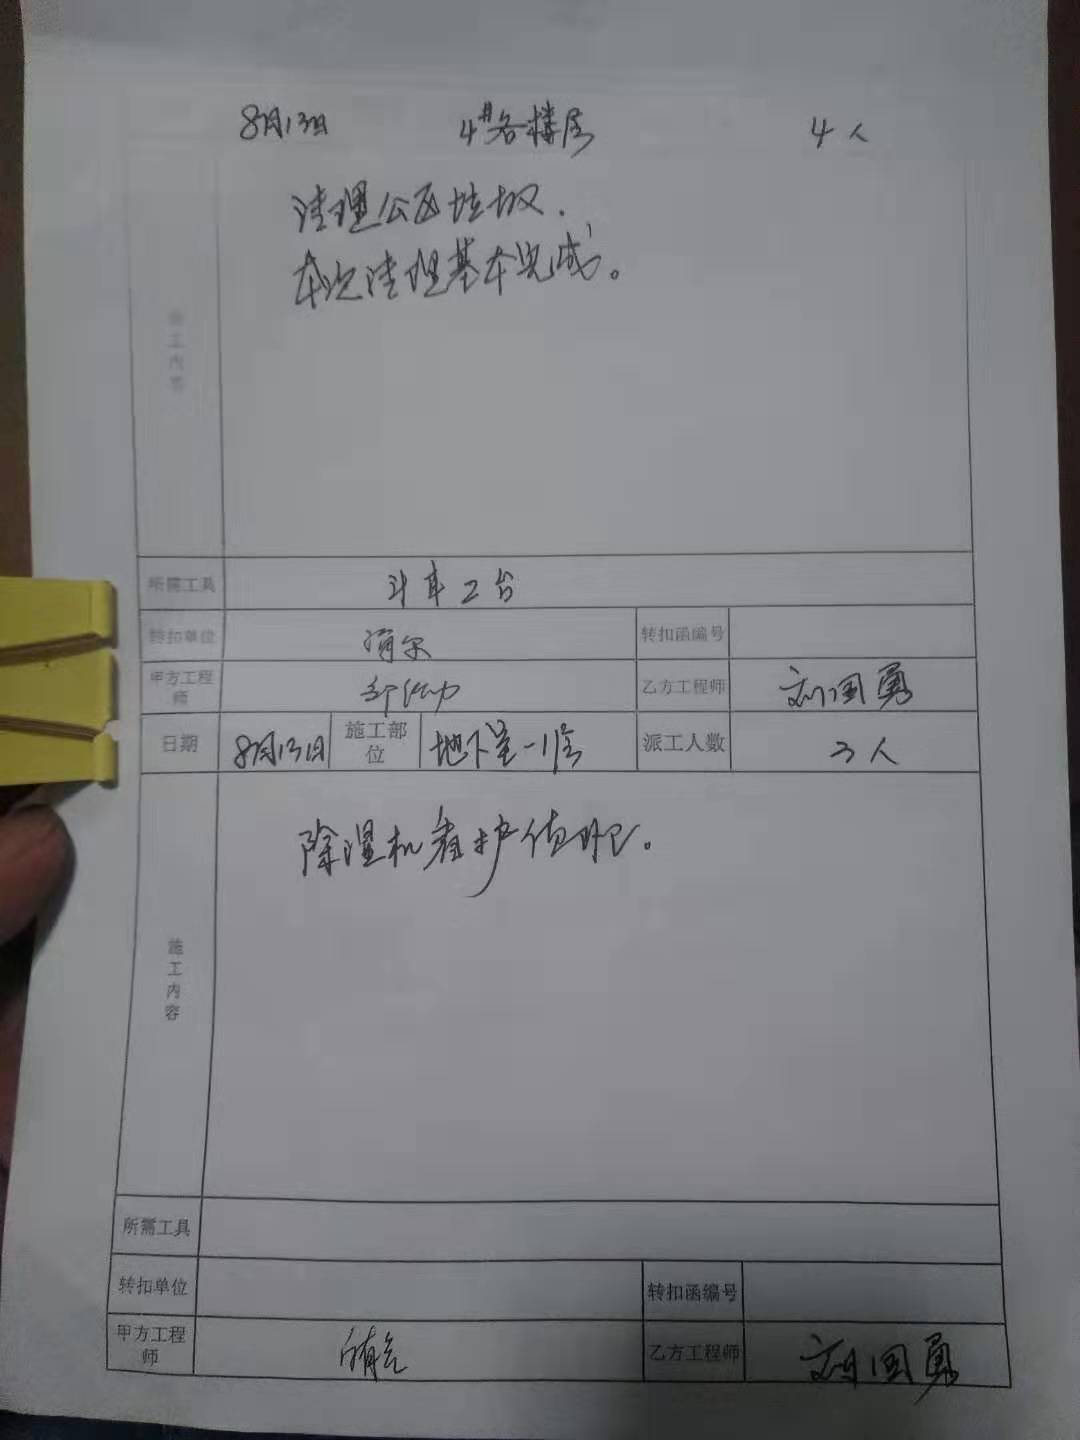 8月13日 4#各楼层 4人
施工内容
清理公区垃圾.
本次清理基本完成。
所需工具 斗车2台
转扣单位 转扣函编号
甲方工程师 乙方工程师 刘国勇
日期 8月13日 施工部位 地下室-1层 派工人数 3人
施工内容
除湿机看护值班。
所需工具
转扣单位 转扣函编号
甲方工程师 乙方工程师 刘国勇